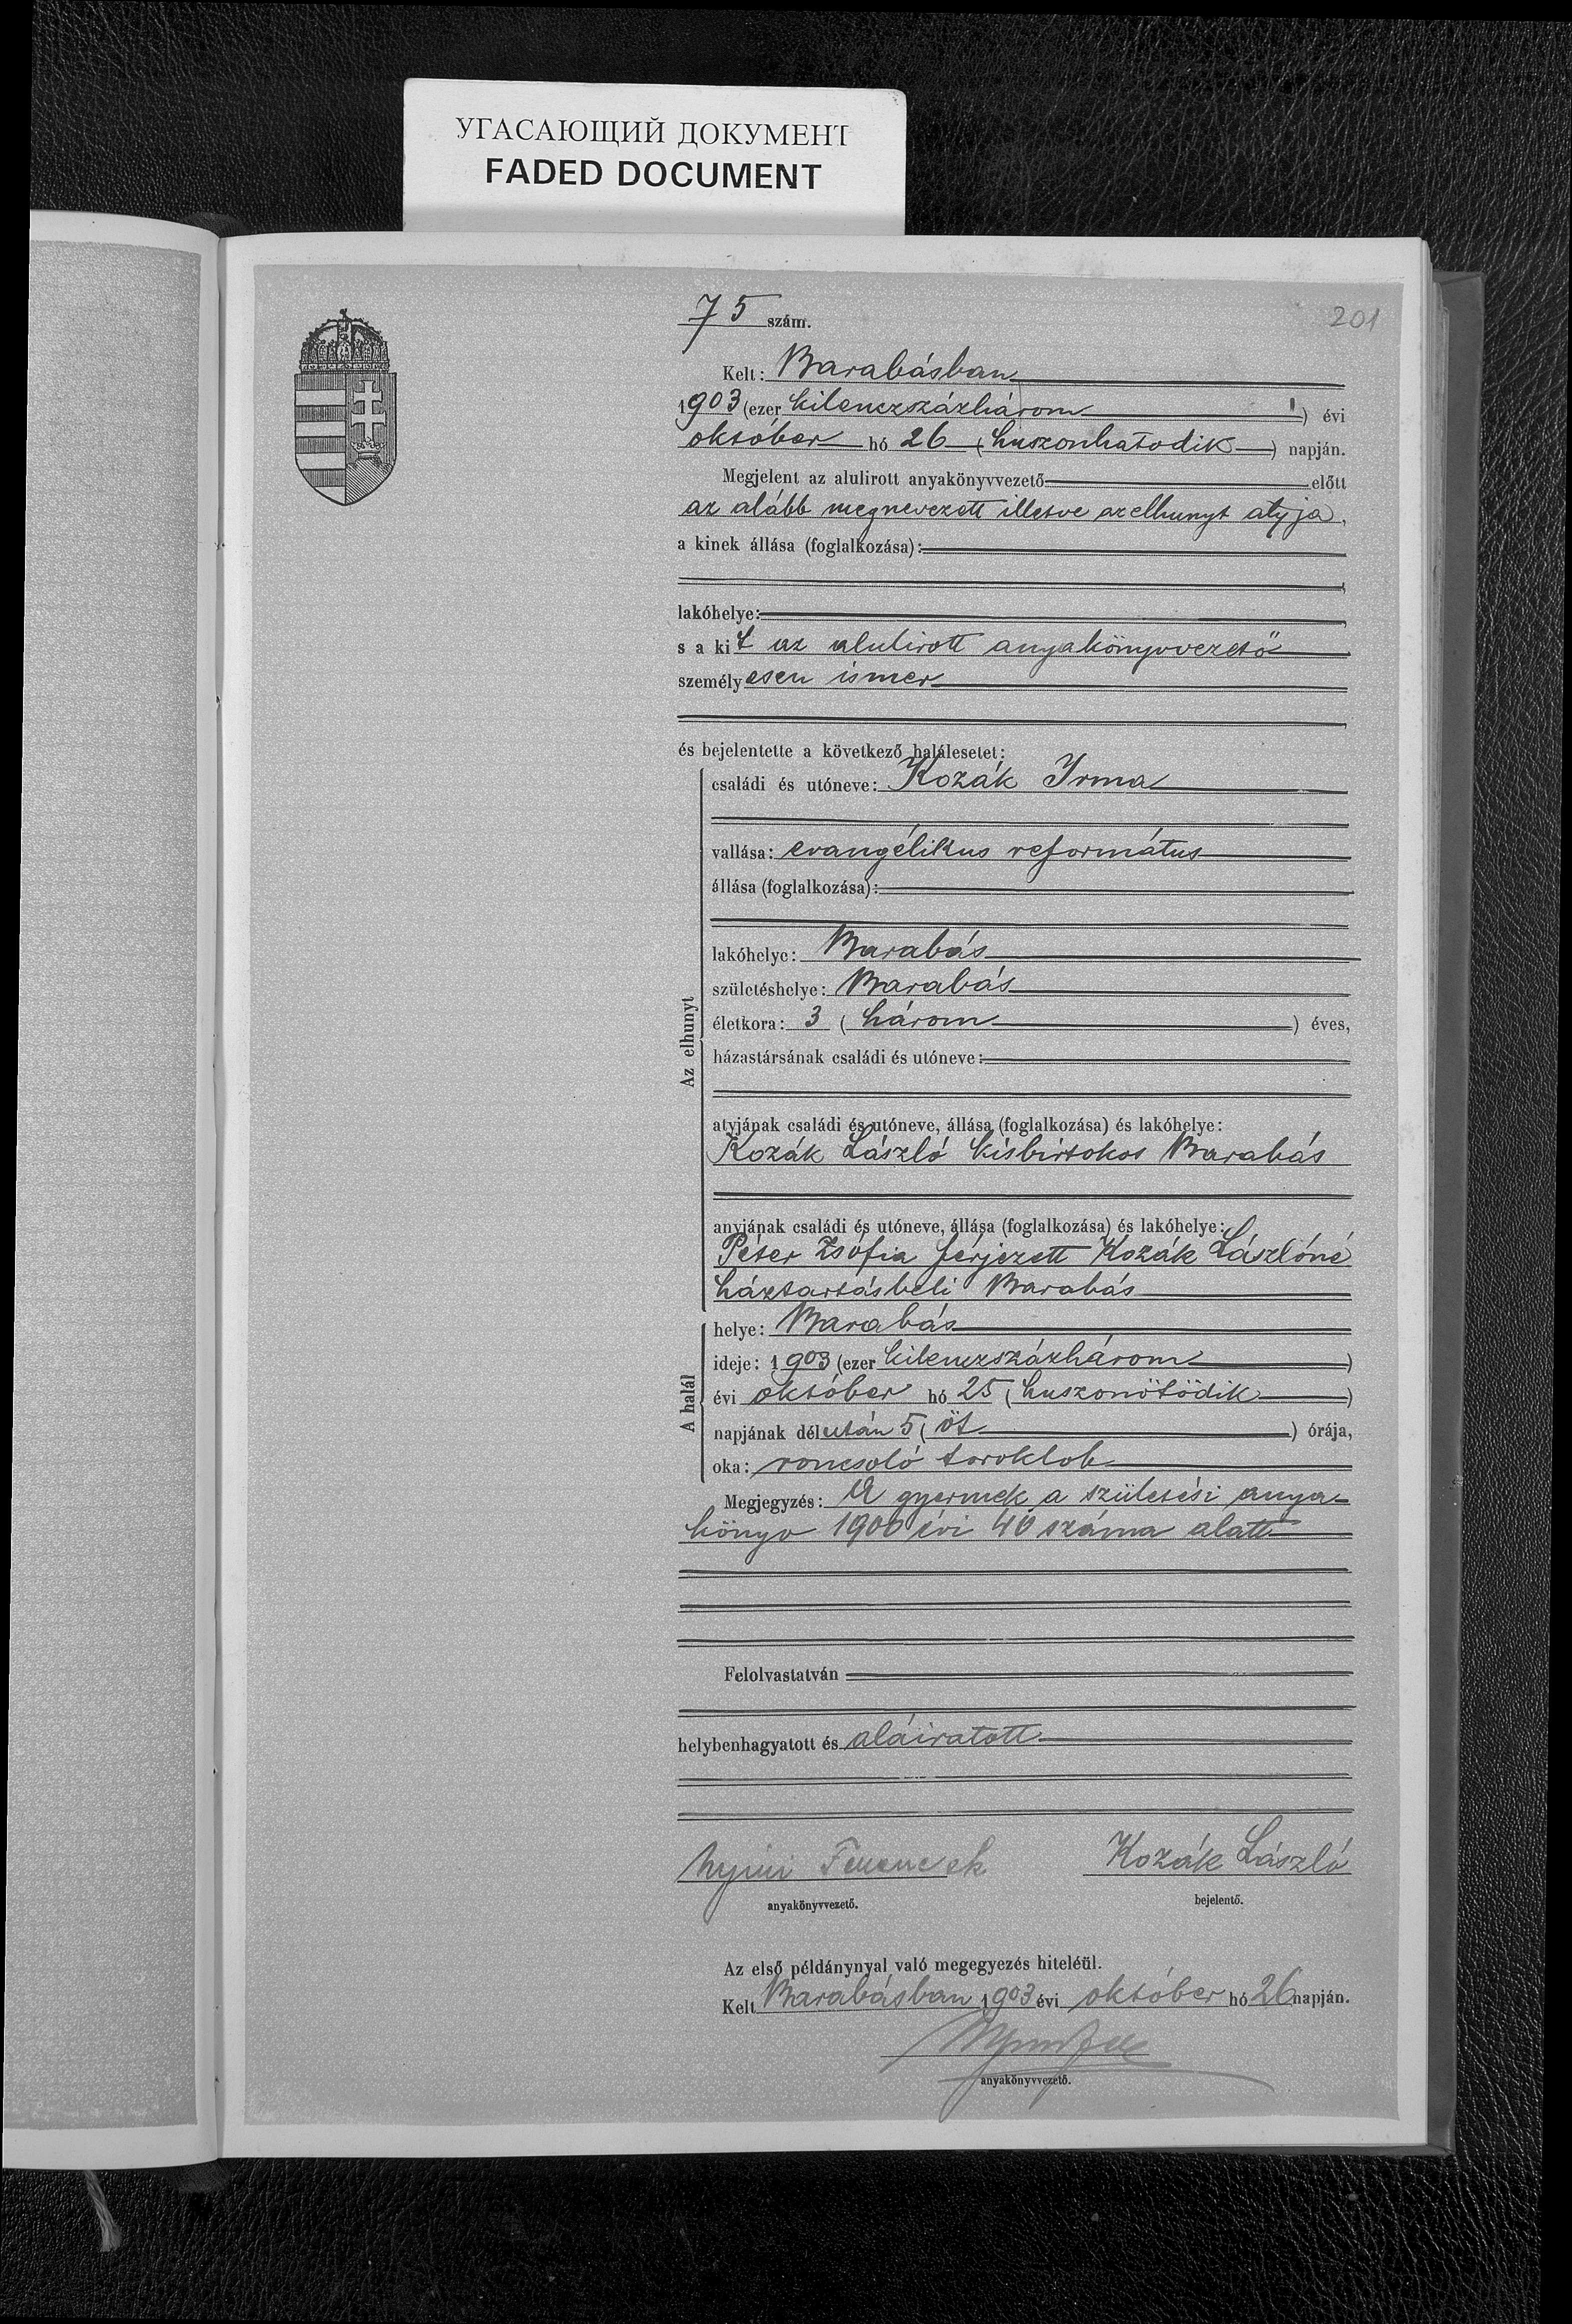 УГАСАЮЩИЙ ДОКУМЕНТ
FADED DOCUMENT
75 szám.
201
Kelt: Barabásban
1903 (ezer kilenczszázhárom) évi
október hó 26 (huszonhatodik) napján.
Megjelent az alulirott anyakönyvvezető előtt
az alább megnevezett illetve az elhunyt atyja,
a kinek állása (foglalkozása):
lakóhelye:
s a kit az alulirott anyakönyvvezető
személyesen ismer
és bejelentette a következő halálesetet:
Az elhunyt
családi és utóneve: Kozák Irma
vallása: evangélikus református
állása (foglalkozása):
lakóhelye: Barabás
születéshelye: Barabás
életkora: 3 (három) éves,
házastársának családi és utóneve:
atyjának családi és utóneve, állása (foglalkozása) és lakóhelye:
Kozák László kisbirtokos Barabás
anyjának családi és utóneve, állása (foglalkozása) és lakóhelye:
Péter Zsófia férjezett Kozák Lászlóné
háztartásbeli Barabás
A halál
helye: Barabás
ideje: 1903 (ezer kilenczszázhárom)
évi október hó 25 (huszonötödik)
napjának délután 5 (öt) órája,
oka: roncsoló toroklob
Megjegyzés: A gyermek a születési anya-
könyv 1900 évi 40 száma alatt
Felolvastatván
helybenhagyatott és aláiratott
Kozák László
anyakönyvvezető.
bejelentő.
Az első példánynyal való megegyezés hiteléül.
Kelt Barabásban 1903 évi október hó 26 napján.
anyakönyvvezető.